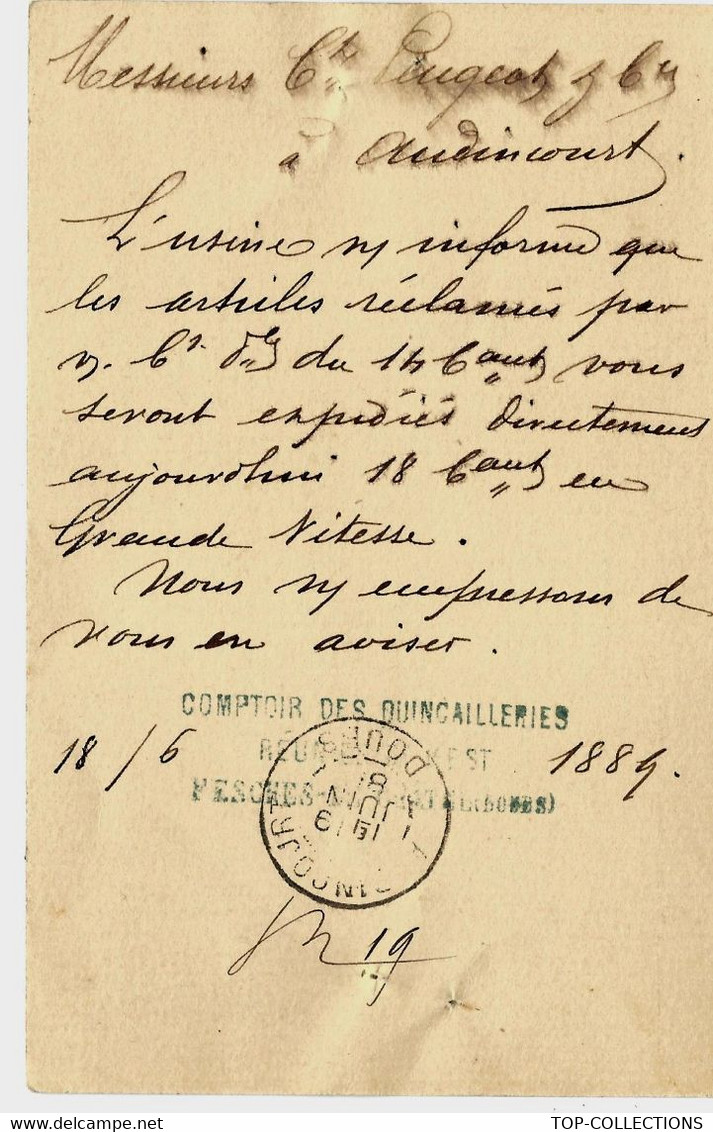 Messieurs Ch. Peugeot & Cie
à Audincourt.
L'usine ns informe que
les articles réclamés par
v. Cte du 14 Ct vous
seront expédiés directement
aujourd'hui 18 Ct en
Grande Vitesse.
Nous ns empressons de
vous en aviser.
COMPTOIR DES QUINCAILLERIES
RÉUNIES EST
FESCHES (DOUBS)
18/6 1889.
AUDINCOURT DOUBS
19 JUIN
19
TOP-COLLECTIONS